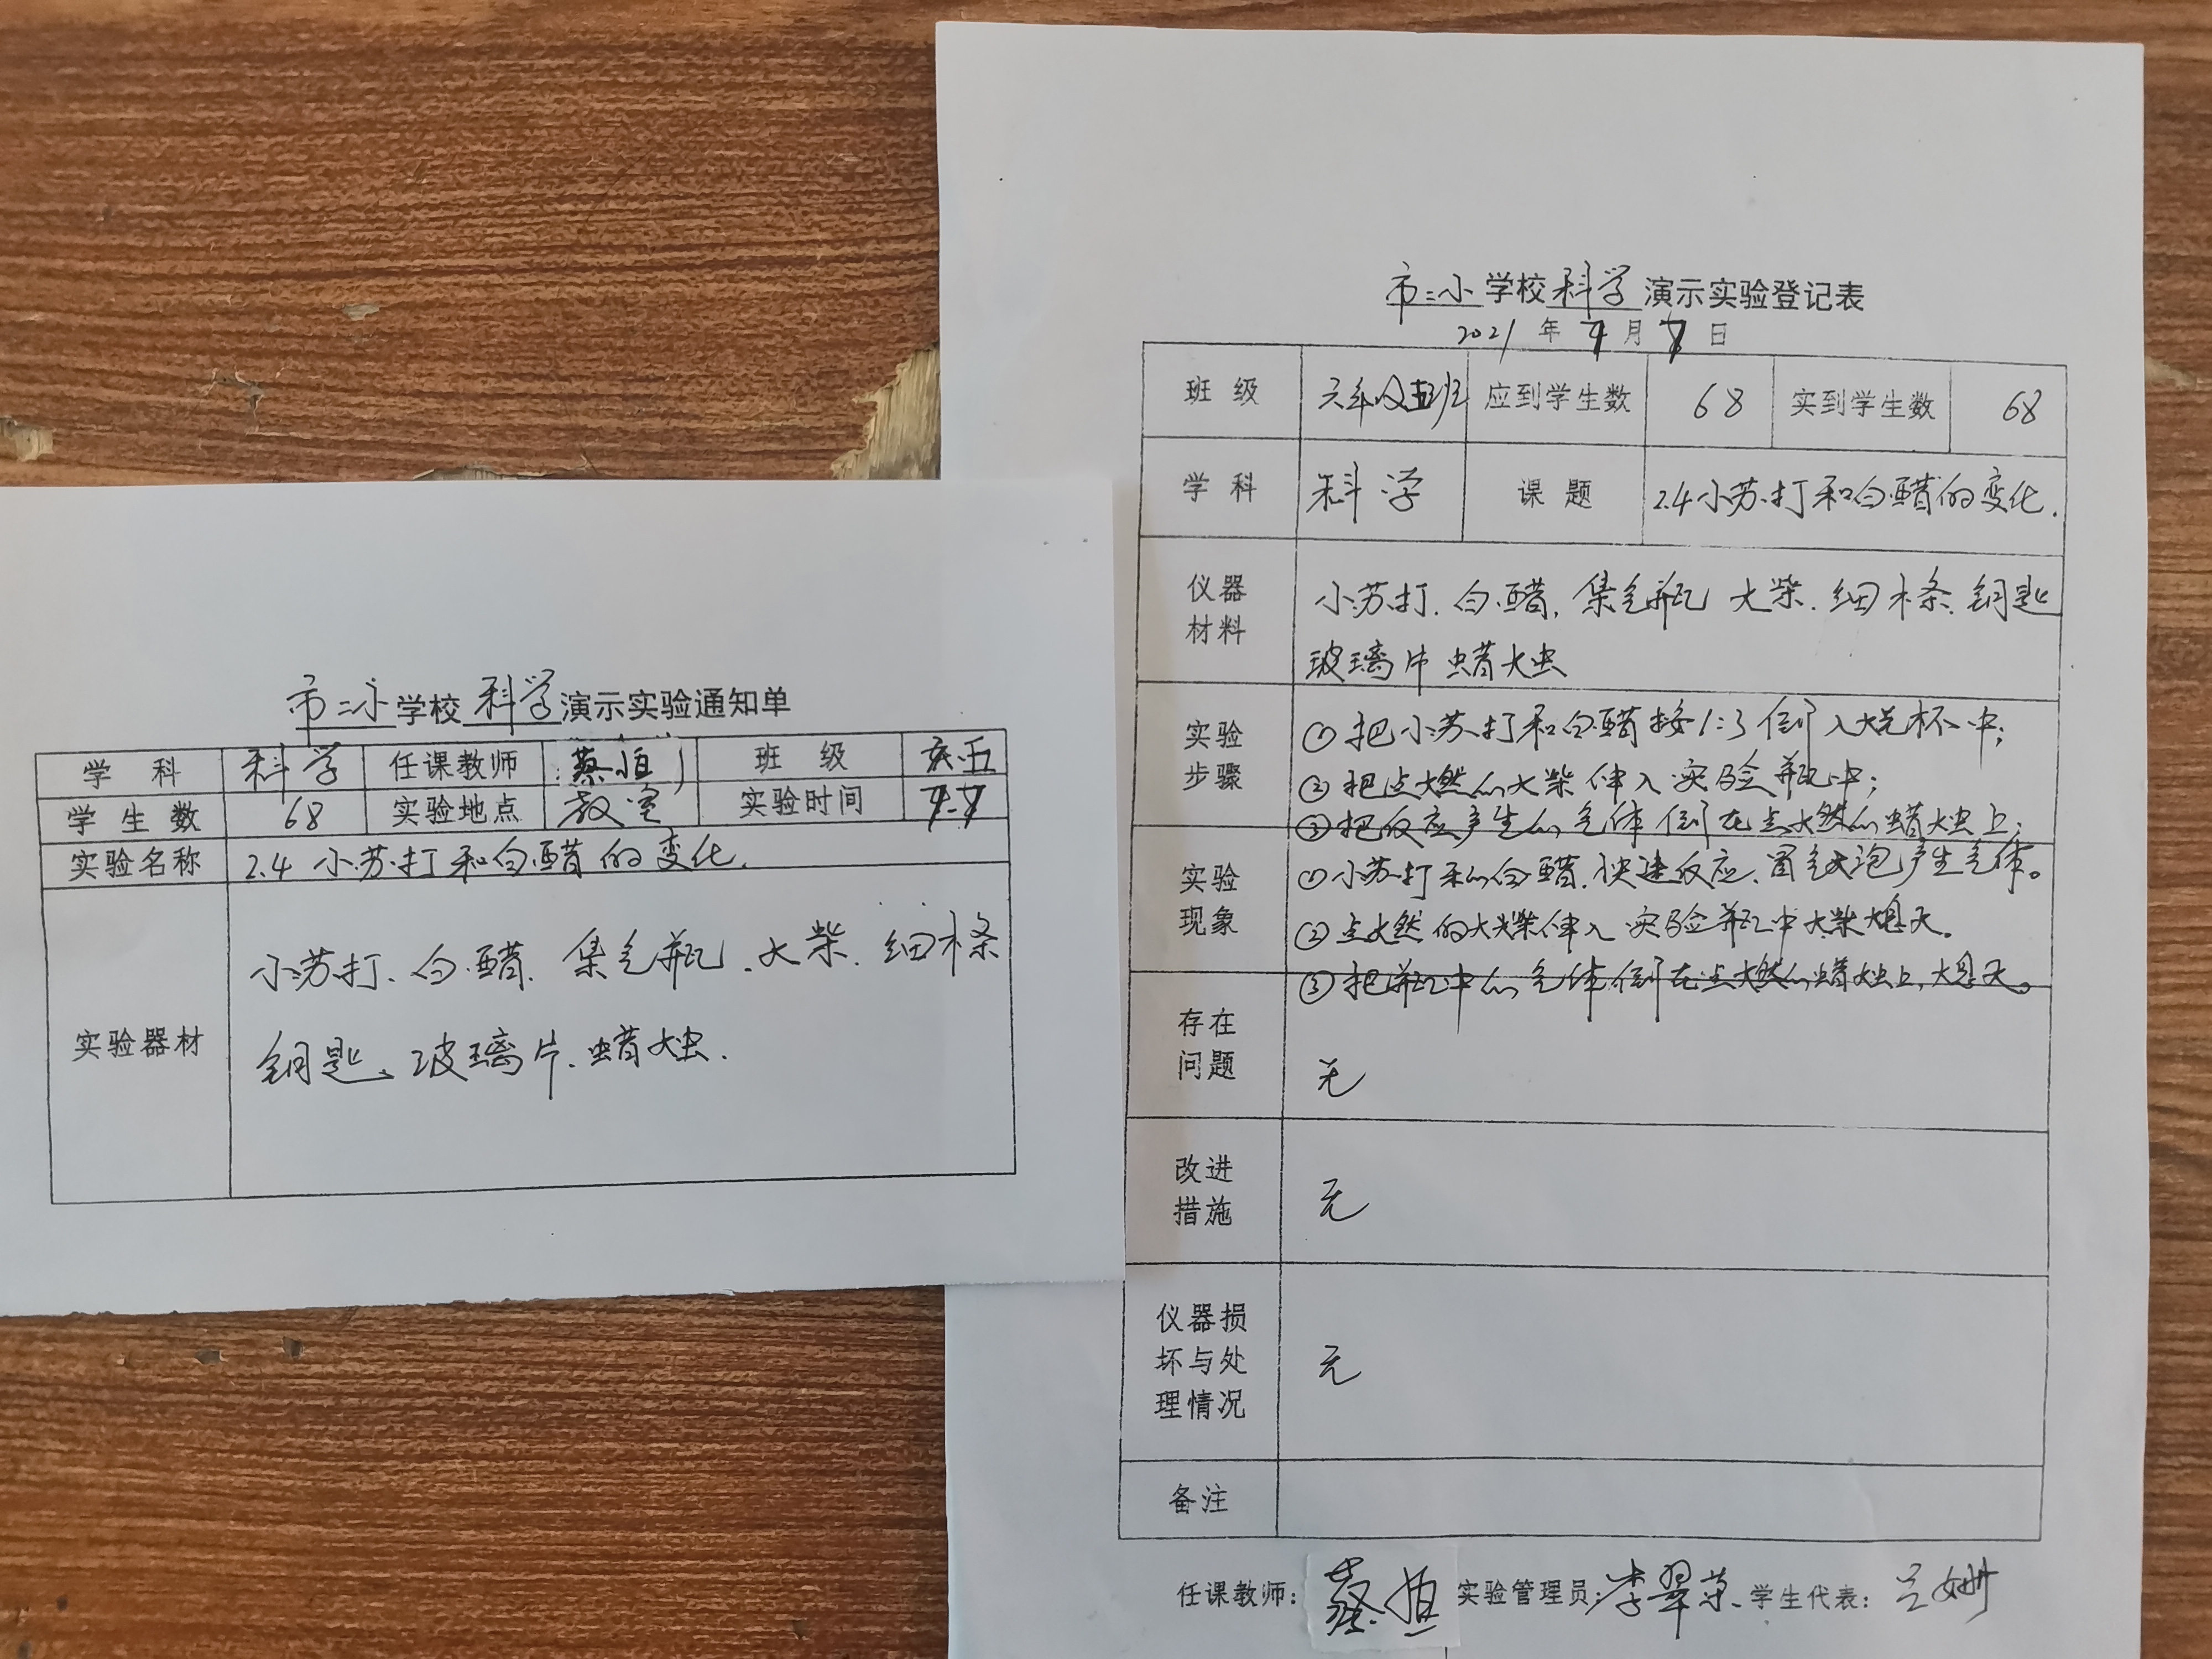 市二小学校科学演示实验通知单
学 科 科学 任课教师 蔡恒 班 级 六.五
学生数 68 实验地点 教室 实验时间
实验名称 2.4 小苏打和白醋的变化.
实验器材 小苏打. 白醋. 集气瓶. 火柴. 细木条
钥匙、玻璃片. 蜡烛.
市二小学校科学演示实验登记表
2021年 月 日
班 级 六年级五班 应到学生数 68 实到学生数 68
学 科 科学 课 题 2.4小苏打和白醋的变化.
仪器材料 小苏打. 白醋. 集气瓶 火柴. 细木条. 钥匙
玻璃片 蜡烛
实验步骤 ①把小苏打和白醋按1:3倒入烧杯中;
②把点燃的火柴伸入实验瓶中;
③把反应产生的气体倒在点燃的蜡烛上;
实验现象 ①小苏打和白醋.快速反应.冒气泡产生气体。
②点燃的火柴伸入实验瓶中火柴熄灭。
③把瓶中的气体倒在点燃的蜡烛上,熄灭。
存在问题 无
改进措施 无
仪器损坏与处理情况 无
备注
任课教师: 蔡恒 实验管理员: 李翠 学生代表: